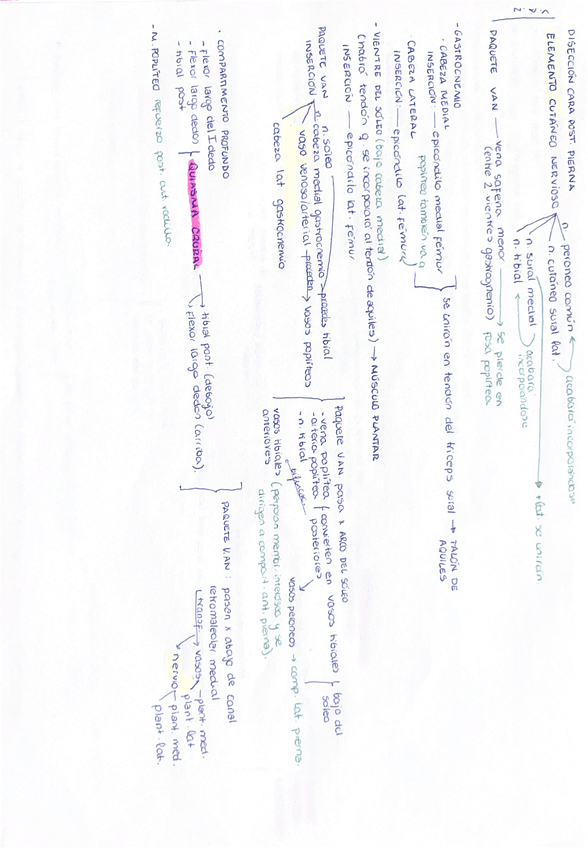 DISECCIÓN CARA POST. PIERNA
ELEMENTO CUTÁNEO NERVIOSO
n. peroneo común
acabará incorporándose
n. cutáneo sural lat.
n. sural medial
n. tibial
acabará incorporándose
+ lat se unirán
PAQUETE VAN — vena safena menor → se pierde en
(entre 2 vientres gastrocnemio) fosa poplítea
- GASTROCNEMIO
· CABEZA MEDIAL
INSERCIÓN — epicóndilo medial fémur
poplíteo también va a
CABEZA LATERAL
INSERCIÓN — epicóndilo lat. fémur
se unirán en tendón del tríceps sural → TALÓN DE
AQUILES
- VIENTRE DEL SÓLEO (bajo cabeza medial)
(habrá tendón q se incorporará al tendón de aquiles) → MÚSCULO PLANTAR
INSERCIÓN — epicóndilo lat. fémur
PAQUETE VAN
INSERCIÓN
n. sóleo
n. cabeza medial gastrocnemio → procede tibial
vaso venoso/arterial → vasos poplíteos
cabeza lat gastrocnemio
Paquete VAN pasa x ARCO DEL SÓLEO
- vena poplítea
- arteria poplítea
convierten en vasos tibiales
posteriores
bajo del
sóleo
- n. tibial
vasos peroneos → comp. lat pierna.
vasos tibiales
anteriores
(perforan memb. interósea y se
dirigen a compart. ant. pierna).
· COMPARTIMENTO PROFUNDO
- flexor largo del 1 dedo
- flexor largo dedos
- tibial post
QUIASMA CRURAL
tibial post. (debajo)
flexor largo dedos (arriba).
PAQUETE VAN: pasan x abajo de canal
retromaleolar medial
vasos
- plant. med.
plant. lat
nervio
- plant. med.
plant. lat.
- M. POPLÍTEO refuerzo post. art rodilla.